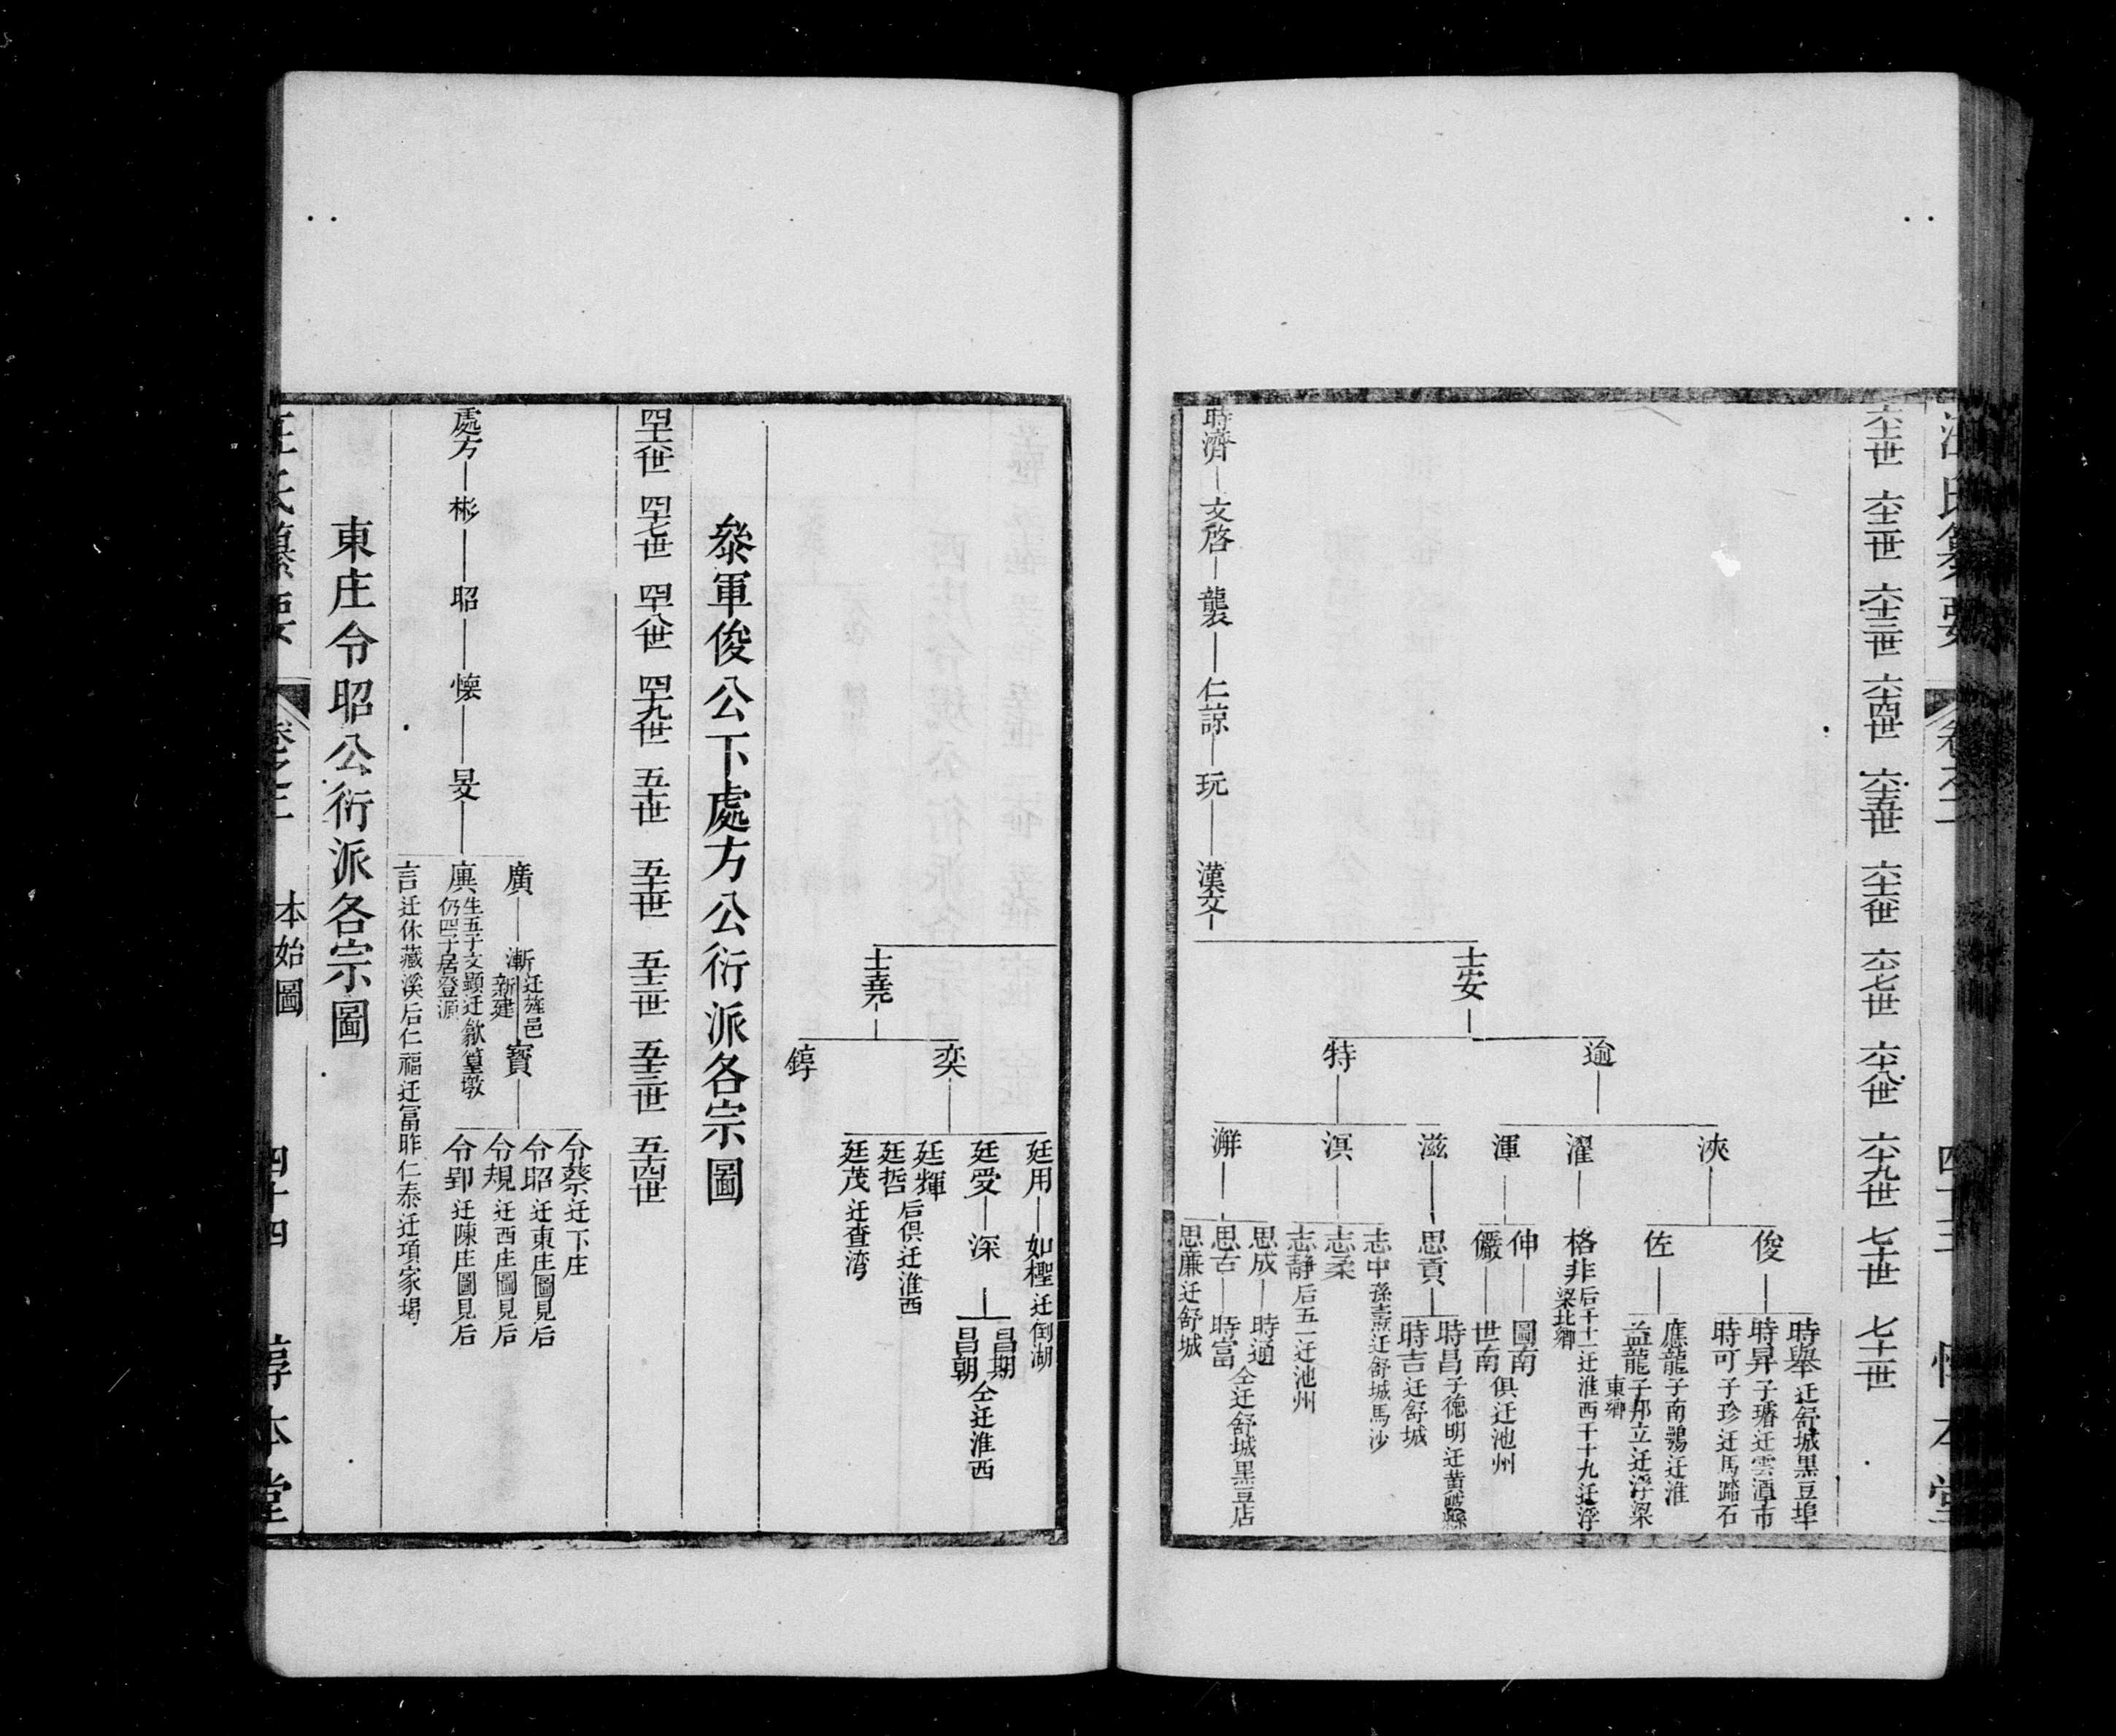 汪氏纂要
卷之二
四十三
惇本堂
六十一世 六十二世 六十三世 六十四世 六十五世 六十六世 六十七世 六十八世 六十九世 七十世 七十一世
時濟 文啓 襲 仁諒 玩 漢文
士安
逾
特
浹
濯
渾
滋
溟
澥
俊
佐
格非 后千十一迁淮西千十九迁浮梁北鄉
伸
儼
思貢
志中 孫燾迁舒城馬沙
志柔
志靜 后五一迁池州
思成
思古
思廉 迁舒城
時舉 迁舒城黑豆埠
時昇 子璿迁雲潭市
時可 子珍迁馬踏石
應龍 子南鶚迁淮
益龍 子邦立迁浮梁東鄉
圖南
世南 俱迁池州
時昌 子德明迁黃陂縣
時吉 迁舒城
時通
時富 仝迁舒城黑豆店
士堯
奕
錞
廷用 如樫 迁倒湖
廷受 深
昌期
昌朝 仝迁淮西
廷輝
廷哲 后俱迁淮西
廷茂 迁查湾
叅軍俊公下處方公衍派各宗圖
四十六世 四十七世 四十八世 四十九世 五十世 五十一世 五十二世 五十三世 五十四世
處方 彬 昭 懷 旻
廣 漸 迁旌邑新建 寶
令蔡 迁下庄
令昭 迁東庄圖見后
令規 迁西庄圖見后
令郢 迁陳庄圖見后
廙 生五子文顯迁歙篁墩仍四子居登源
言 迁休藏溪后仁福迁富昨仁泰迁項家堨
東庄令昭公衍派各宗圖
汪氏纂要
卷之二
本始圖
四十四
惇本堂